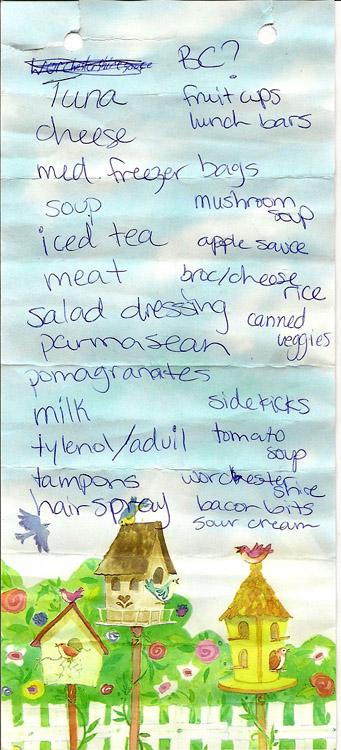 worchestershire sauce BC?
Tuna fruit cups
cheese lunch bars
med. freezer bags
soup mushroom soup
iced tea apple sauce
meat broc/cheese rice
salad dressing canned veggies
parmasean
pomagranates
milk sidekicks
tylenol/advil tomato soup
tampons worchester shire
hairspray bacon bits
sour cream